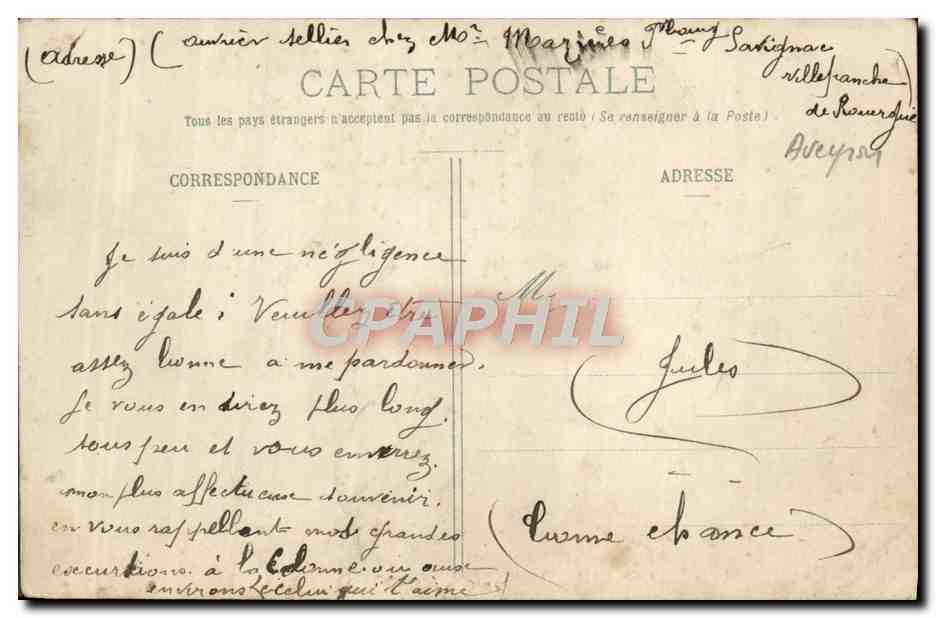 (Adresse) (ouvrier sellier chez Mr Mazières Savignac
Villefranche)
de Rouergue
Aveyron
CARTE POSTALE
Tous les pays étrangers n'acceptent pas la correspondance au recto (Se renseigner à la Poste).
CORRESPONDANCE
ADRESSE
Je suis d'une négligence
sans égale; Veuillez être
assez bonne a me pardonner.
Je vous en direz plus long.
sous peu et vous enverrez.
mon plus affectueux souvenir.
en vous rappellent nos grandes
excursions à la ou aux
environs celui qui t'aime
M
(Jules)
(bonne chance)
CPAPHIL